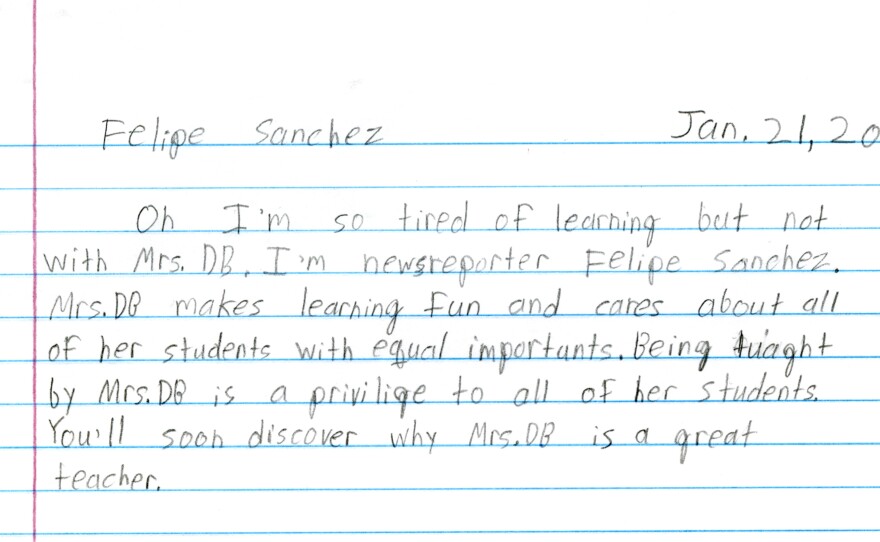 Felipe Sanchez Jan. 21, 20
Oh I'm so tired of learning but not
with Mrs. DB. I'm newsreporter Felipe Sanchez.
Mrs. DB makes learning fun and cares about all
of her students with equal importants. Being tuaght
by Mrs. DB is a privilige to all of her students.
You'll soon discover why Mrs. DB is a great
teacher.